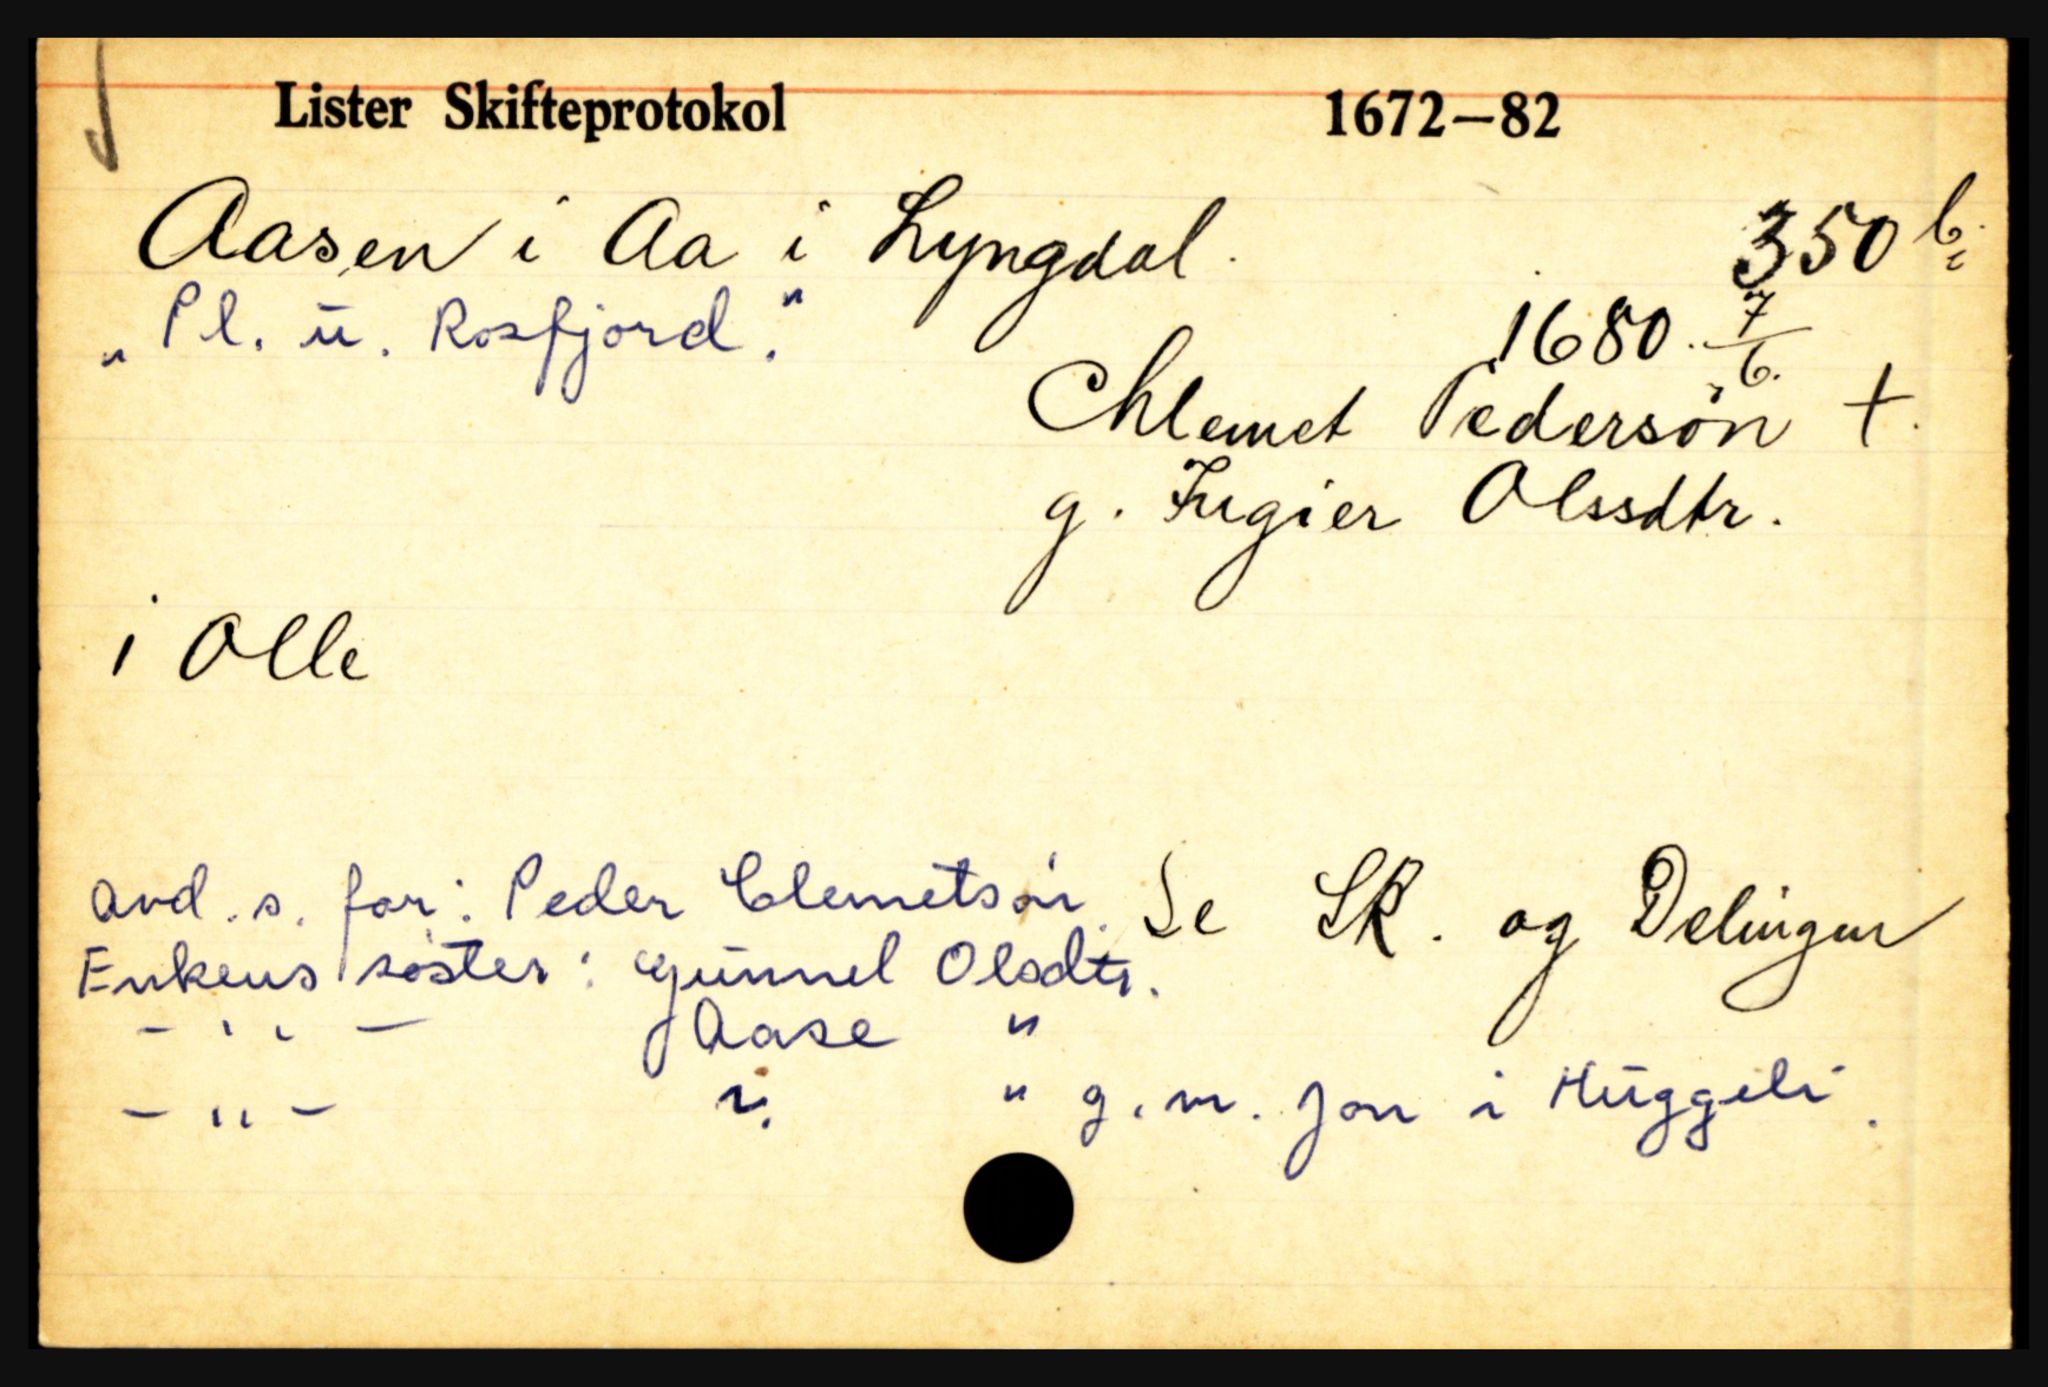 Lister Skifteprotokol 1672—82
Aasen i Aa i Lyngdal. 350 b.
„Pl. ū. Rosfjord." 1680. 7/6.
Chlemet Pedersøn +.
g. Ingier Olssdtr.
1 Olle
avd. s. far: Peder Clemetsøn. Se SK. og Delingen
Enkens søster: Gunnel Olsdtr.
- " - Aase "
- " - N. " g. m. Jon i Hūggeli.